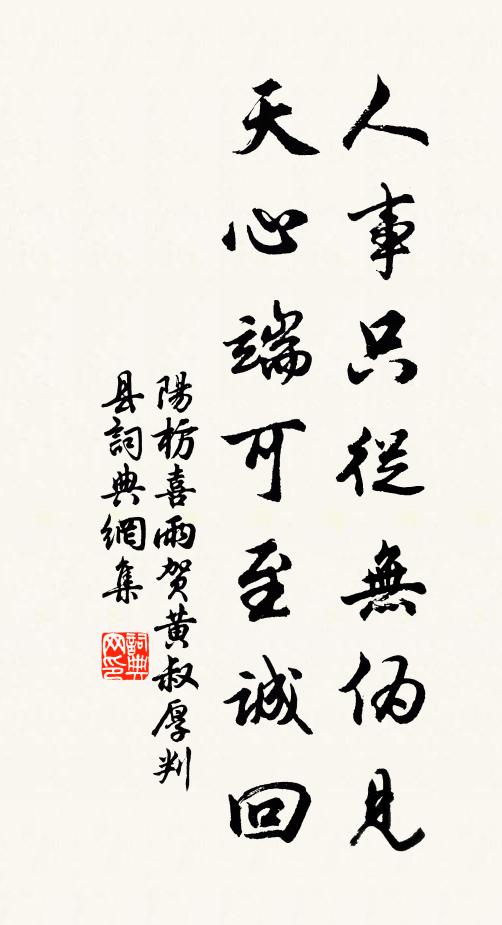 人事只從無偽見
天心端可至誠回
陽枋喜雨贺黄叔厚判
县詞典網集
詞典
网印